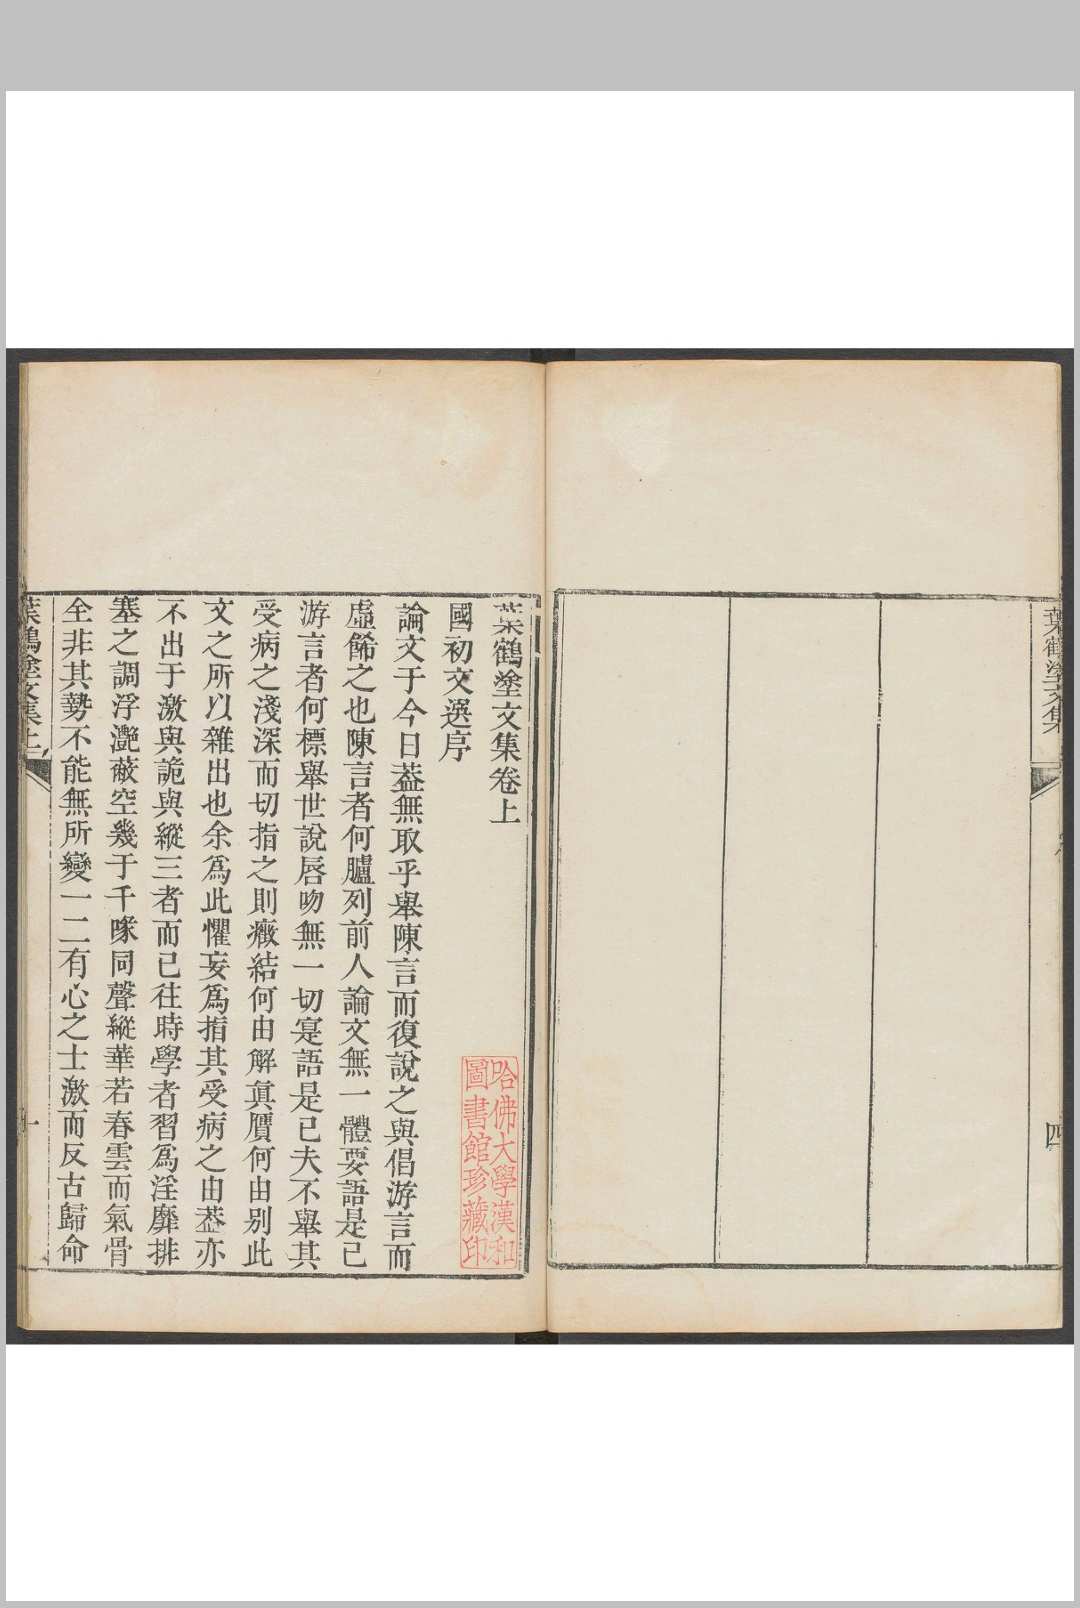 葉鶴塗文集
四
葉鶴塗文集卷上
國初文選序
論文于今日葢無取乎舉陳言而復說之與倡游言而
虛餙之也陳言者何臚列前人論文無一體要語是已
游言者何標舉世說唇吻無一切寔語是已夫不舉其
受病之淺深而切指之則癥結何由解真贋何由別此
文之所以雜出也余爲此懼妄爲指其受病之由葢亦
不出于激與詭與縱三者而已往時學者習爲淫靡排
塞之調浮灔蔽空幾于千喙同聲縱華若春雲而氣骨
全非其勢不能無所變一二有心之士激而反古歸命
葉鶴塗文集上
一
哈佛大學漢和
圖書館珍藏印